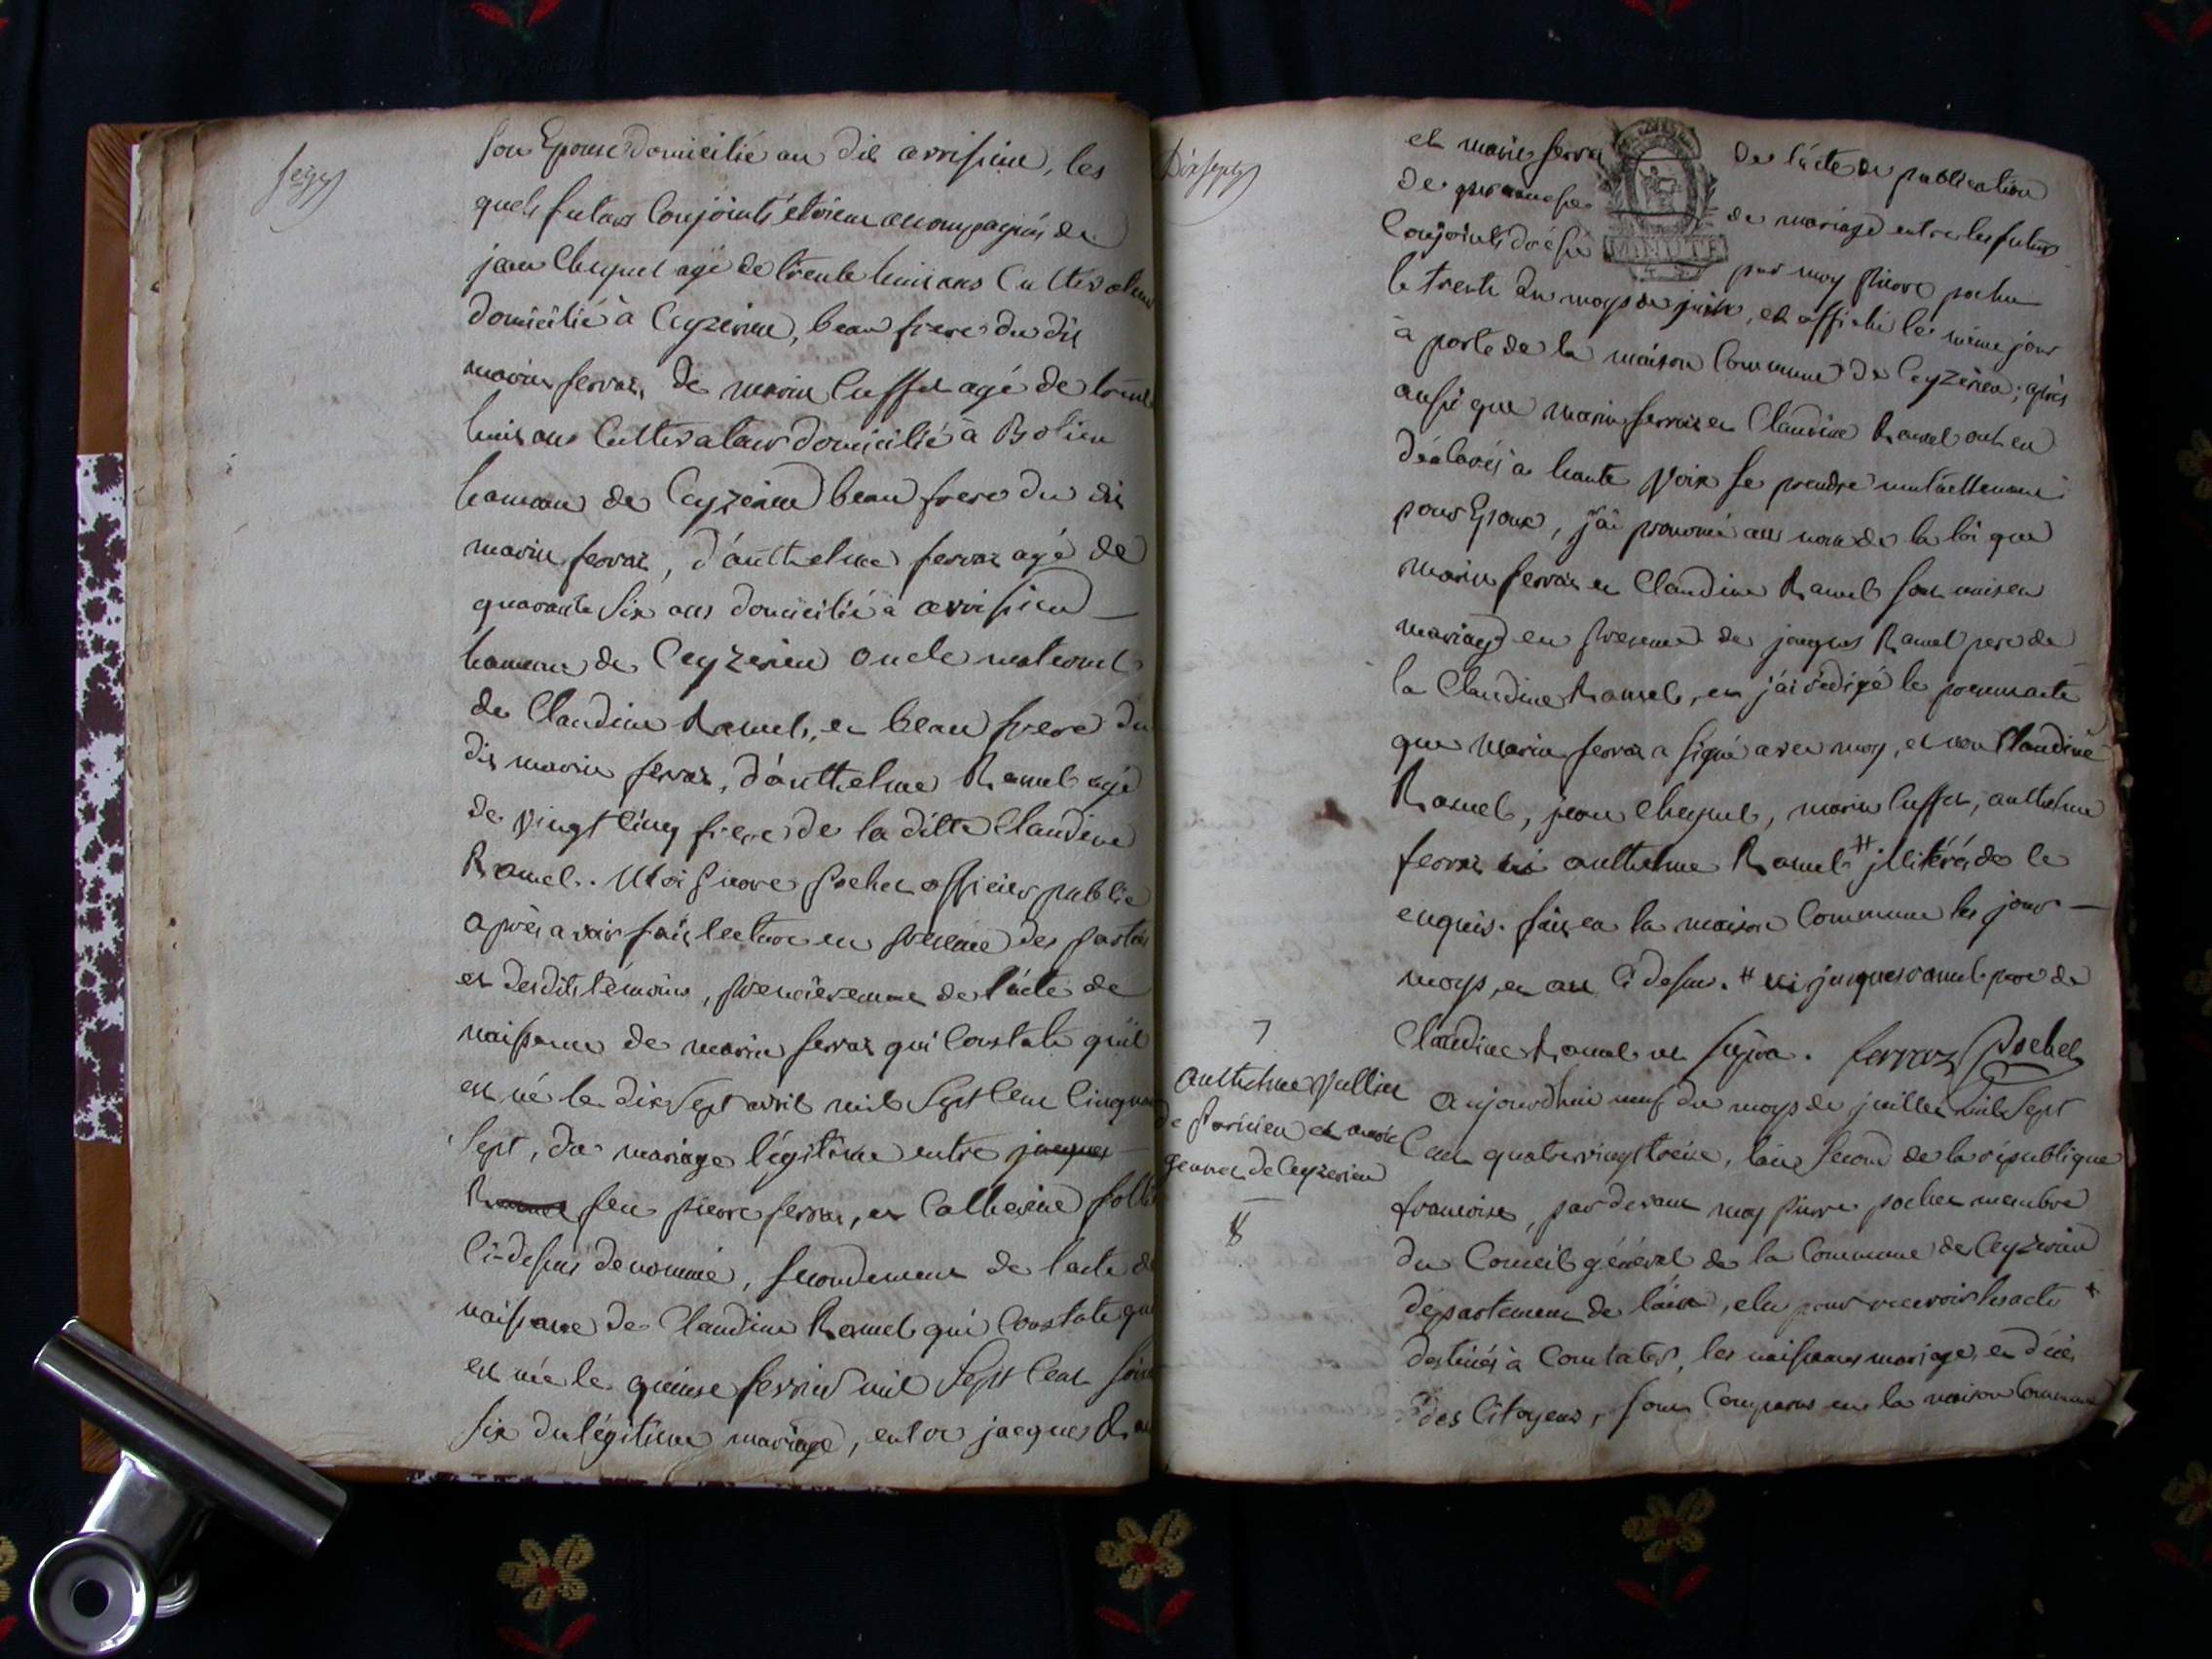 seize
son Epouse domicilié au dit avrissieu, les
quels futurs Conjoints étoient accompagnés de
jean Cheynel agé de trente huit ans Cultivateur
domicilié à Ceyzerieu, beau frere du dit
marin ferraz, de marin Cuffet agé de trente
huit ans Cultivateur domicilié à
hameau de Ceyzerieu beau frere du dit
marin ferraz, d'anthelme ferraz agé de
quarante six ans domicilié à avrissieu
hameau de Ceyzerieu oncle maternel
de Claudine Ramel, et beau frere du
dit marin ferraz, d'anthelme Ramel agé
de vingt cinq frere de la ditte Claudine
Ramel. Moi pierre pochet officier public
après avoir fait lecture en presence des parties
et desdits témoins, premierement de l'acte de
naissance de marin ferraz qui Constate qu'il
est né le dix sept avril mil sept Cent Cinquante
sept, du mariage légitime entre jacques
Ramel feu pierre ferraz, et Catherine
Ci-dessus denommé, secondement de l'acte de
naissance de Claudine Ramel qui Constate que
est née le quinze fevrier mil sept Cent
six du légitime mariage, entre jacques
Dix sept
et marie ferraz de l'acte de publication
de promesse de mariage entre les futurs
Conjoints dréssé par moy pierre pochet
le trente du moys de juin, et affiché le même jour
à porte de la maison Commune de Ceyzerieu; après
aussi que marin ferraz et Claudine Ramel ont eu
déclarés à haute voix se prendre mutuellement
pour Epoux, j'ai prononcé au nom de la loi que
marin ferraz et Claudine Ramel sont unis en
mariage en presence de jacques Ramel pere de
la Claudine Ramel, et j'ai rédigé le present acte
que marin ferraz a signé avec moy, et non Claudine
Ramel, jean Cheynel, marin Cuffet, anthelme
ferraz ni anthelme Ramel # jllitérés de ce
enquis. fait en la maison Commune les jour
moys, et an Ci dessus. # ni jacques ramel pere de
Claudine Ramel
ferraz pochet
7
anthelme Vullier
de et marie
de Ceyzerieu
8
aujourdhui neuf du moys de juillet mil sept
Cent quatrevingt treize, l'an second de la république
francoise, par devant moy pierre pochet membre
du Conseil général de la Commune de Ceyzerieu
département de l'ain, elu pour recevoir les acte
destinés à Constater, les naissances mariage, et décès
des Citoyens, sont Comparus en la maison Commune
MINUTE